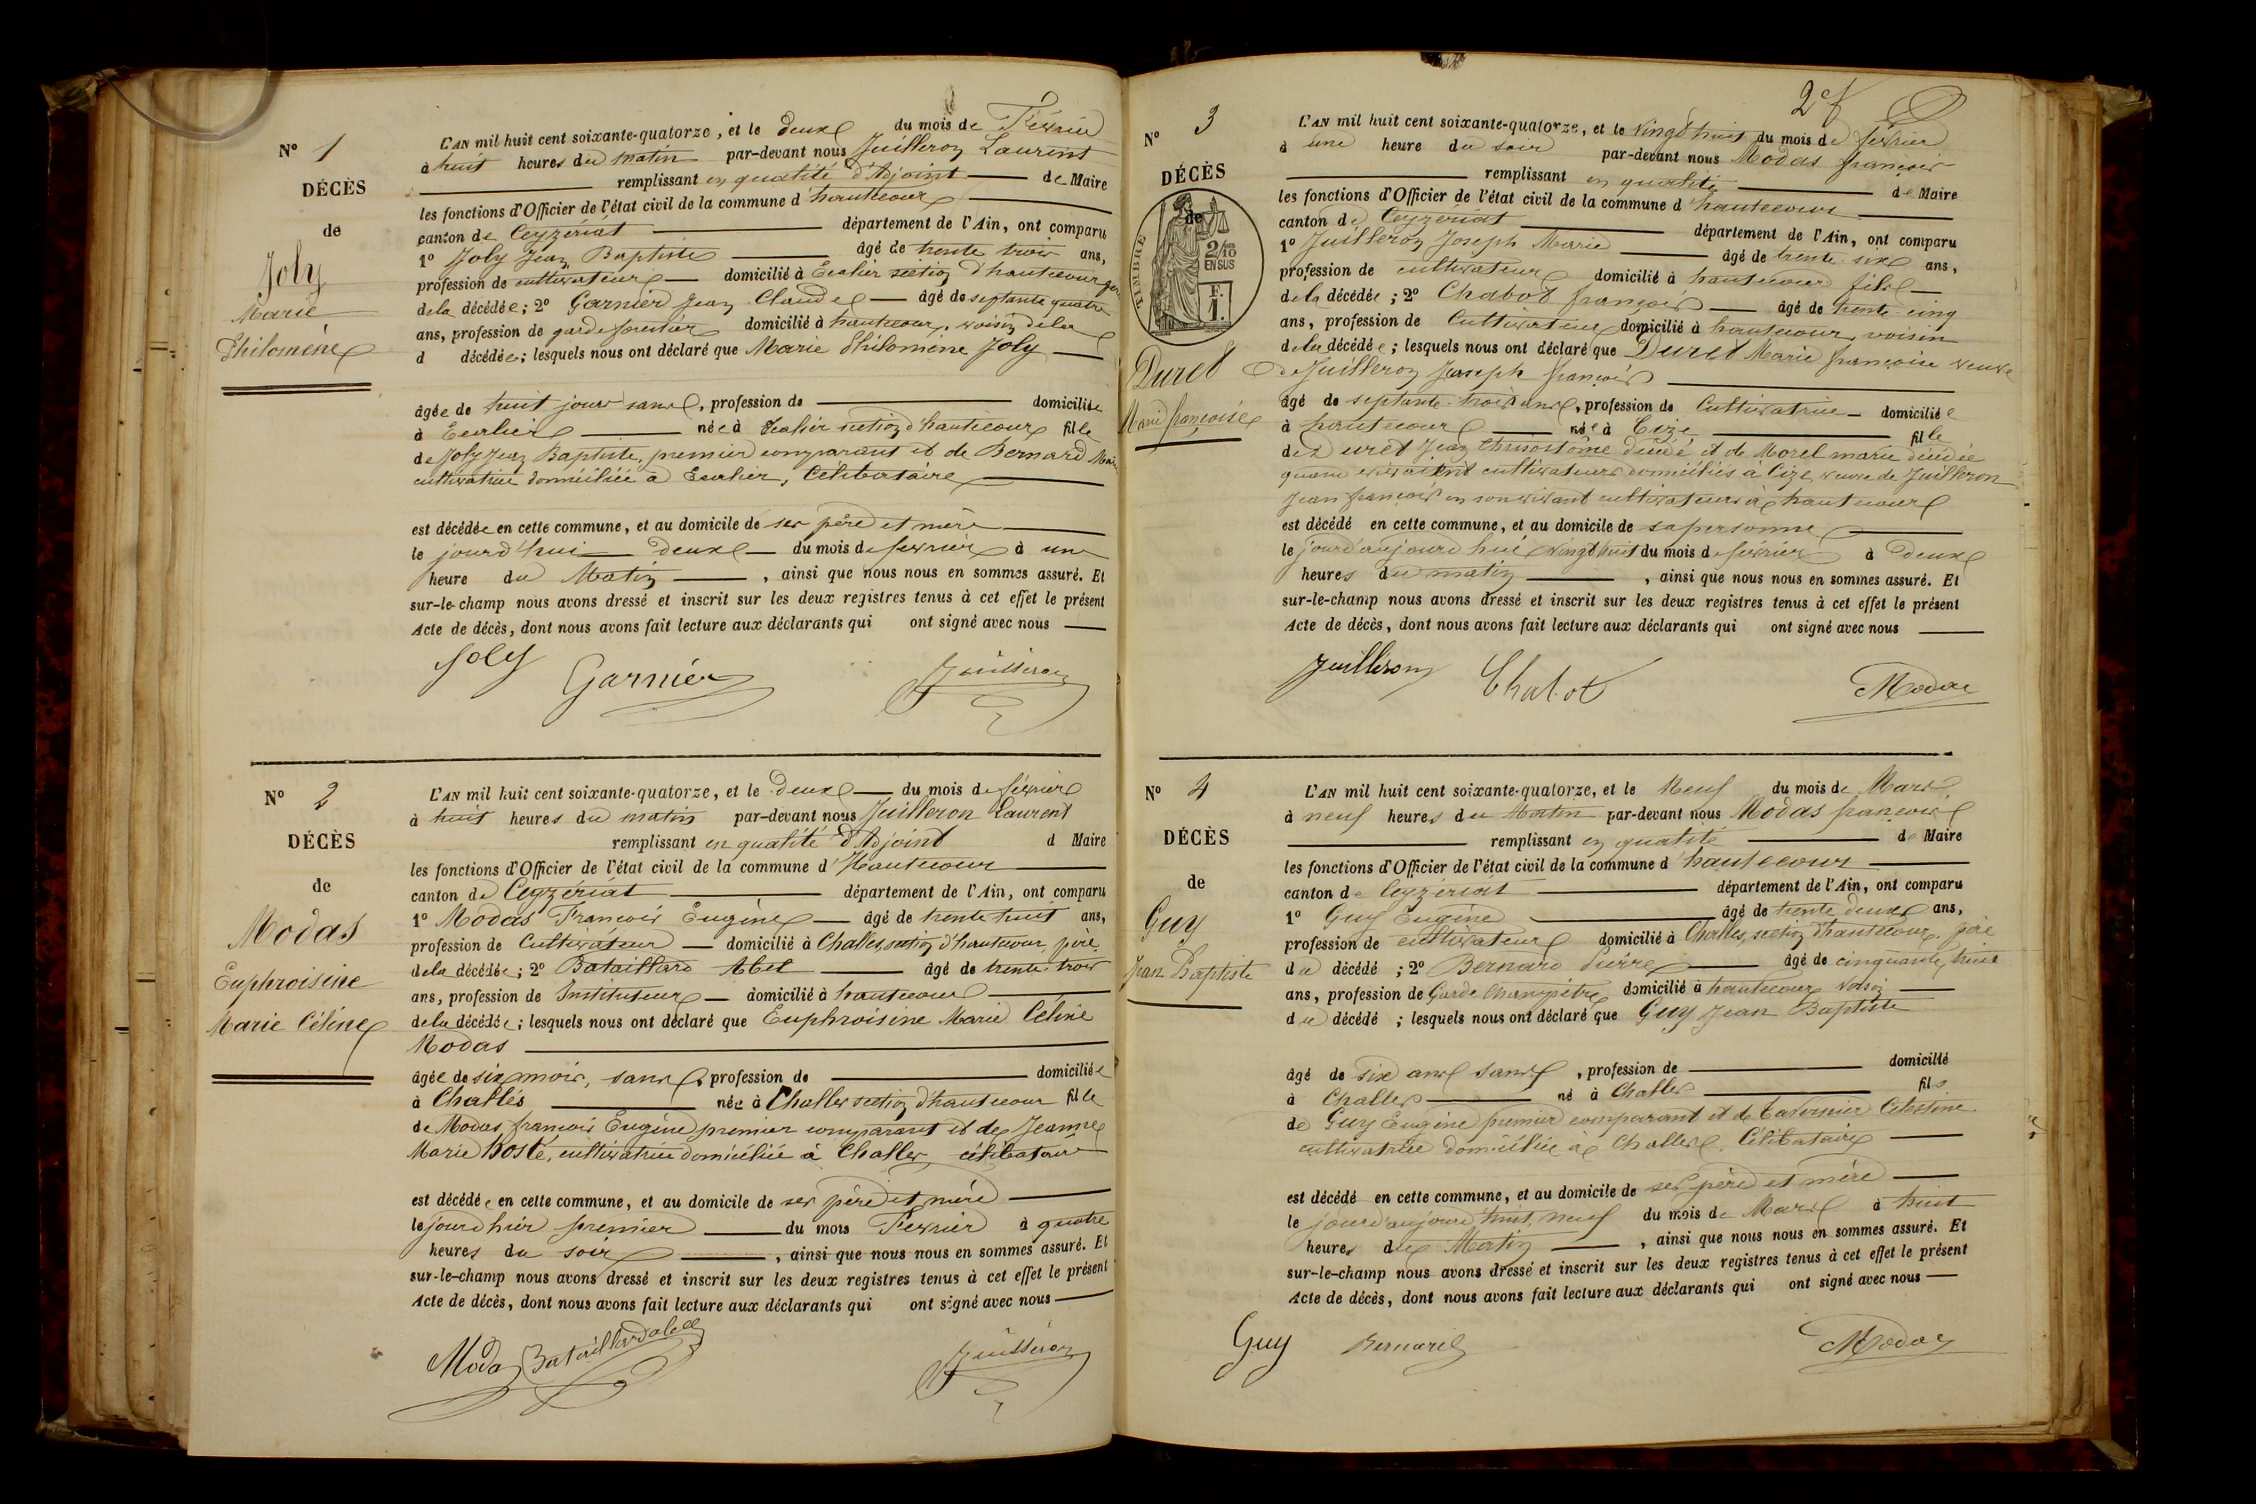 N° 1
DÉCÈS
de
Joly
Marie
Philomène
L'AN mil huit cent soixante-quatorze, et le deux du mois de Février
à huit heures du matin par-devant nous Juilleron Laurent
remplissant en qualité d'Adjoint de Maire
les fonctions d'Officier de l'état civil de la commune d'hautecour
canton de Ceyzériat département de l'Ain, ont comparu
1° Joly Jean Baptiste âgé de trente trois ans,
profession de cultivateur domicilié à Ecalier section d'hautecour père
de la décédée; 2° Garnier Jean Claude âgé de septante quatre
ans, profession de garde forestier domicilié à hautecour, voisin de la
d décédée; lesquels nous ont déclaré que Marie Philomène Joly
âgée de huit jours sans, profession de domiciliée
à Ecalier née à Ecalier section d'hautecour fille
de Joly Jean Baptiste, premier comparant et de Bernard Marie
cultivatrice domiciliée à Ecalier, Célibataire
est décédée en cette commune, et au domicile de ses père et mère
le jourd'hui deux du mois de fevrier à une
heure du Matin, ainsi que nous nous en sommes assuré. Et
sur-le-champ nous avons dressé et inscrit sur les deux registres tenus à cet effet le présent
Acte de décès, dont nous avons fait lecture aux déclarants qui ont signé avec nous
Joly Garnier Juilleron
N° 2
DÉCÈS
de
Modas
Euphroisine
Marie Céline
L'AN mil huit cent soixante-quatorze, et le deux du mois de février
à huit heures du matin par-devant nous Juilleron Laurent
remplissant en qualité d'Adjoint d Maire
les fonctions d'Officier de l'état civil de la commune d'Hautecour
canton de Ceyzériat département de l'Ain, ont comparu
1° Modas François Eugène âgé de trente huit ans,
profession de Cultivateur domicilié à Challes, section d'hautecour, père
de la décédée; 2° Bataillard Abel âgé de trente trois
ans, profession de Instituteur domicilié à hautecour
de la décédée; lesquels nous ont déclaré que Euphroisine Marie Céline
Modas
âgée de six mois, sans, profession de domiciliée
à Challes née à Challes section d'hautecour fille
de Modas françois Eugène premier comparant et de Jeanne
Marie Bosté, cultivatrice domiciliée à Challes, célibataire
est décédée en cette commune, et au domicile de ses père et mère
le jour d'hier premier du mois Fevrier à quatre
heures du soir, ainsi que nous nous en sommes assuré. Et
sur-le-champ nous avons dressé et inscrit sur les deux registres tenus à cet effet le présent
Acte de décès, dont nous avons fait lecture aux déclarants qui ont signé avec nous
Modas Bataillard abel Juilleron
2e f
N° 3
DÉCÈS
de
TIMBRE
2/10
EN SUS
F.
1.
Duret
Marie françoise
L'AN mil huit cent soixante-quatorze, et le vingt huit du mois de février
à une heure du soir par-devant nous Modas françois
remplissant en qualité de Maire
les fonctions d'Officier de l'état civil de la commune d'hautecour
canton de Ceyzériat département de l'Ain, ont comparu
1° Juilleron Joseph Marie âgé de trente six ans,
profession de cultivateur domicilié à hautecour fils
de la décédée; 2° Chabot françois âgé de trente cinq
ans, profession de Cultivateur domicilié à hautecour, voisin
de la décédée; lesquels nous ont déclaré que Duret Marie françoise veuve
de Juilleron Joseph françois
âgé de septante trois ans, profession de Cultivatrice domiciliée
à hautecour née à Cize fille
de Duret Jean Chrisostôme décédé et de Morel marie décédée
quand vivaient cultivateurs domiciliés à Cize, veuve de Juilleron
Jean françois en son vivant cultivateur à hautecour
est décédé en cette commune, et au domicile de sa personne
le jour d'aujourd'hui vingt huit du mois de février à deux
heures du matin, ainsi que nous nous en sommes assuré. Et
sur-le-champ nous avons dressé et inscrit sur les deux registres tenus à cet effet le présent
Acte de décès, dont nous avons fait lecture aux déclarants qui ont signé avec nous
Juilleron Chabot Modas
N° 4
DÉCÈS
de
Guy
Jean Baptiste
L'AN mil huit cent soixante-quatorze, et le Neuf du mois de Mars
à neuf heures du Matin par-devant nous Modas françois
remplissant en qualité de Maire
les fonctions d'Officier de l'état civil de la commune d'hautecour
canton de Ceyzériat département de l'Ain, ont comparu
1° Guy Eugène âgé de trente deux ans,
profession de cultivateur domicilié à Challes, section d'hautecour, père
du décédé; 2° Bernard Pierre âgé de cinquante huit
ans, profession de Garde Champêtre domicilié à hautecour voisin
du décédé; lesquels nous ont déclaré que Guy Jean Baptiste
âgé de six ans sans, profession de domicilié
à Challes né à Challes fils
de Guy Eugène premier comparant et de Tavernier Celestine
cultivatrice domiciliée à Challes, Célibataire
est décédé en cette commune, et au domicile de ses père et mère
le jour d'aujourd'huit, neuf du mois de Mars à huit
heures du Matin, ainsi que nous nous en sommes assuré. Et
sur-le-champ nous avons dressé et inscrit sur les deux registres tenus à cet effet le présent
Acte de décès, dont nous avons fait lecture aux déclarants qui ont signé avec nous
Guy Bernard Modas